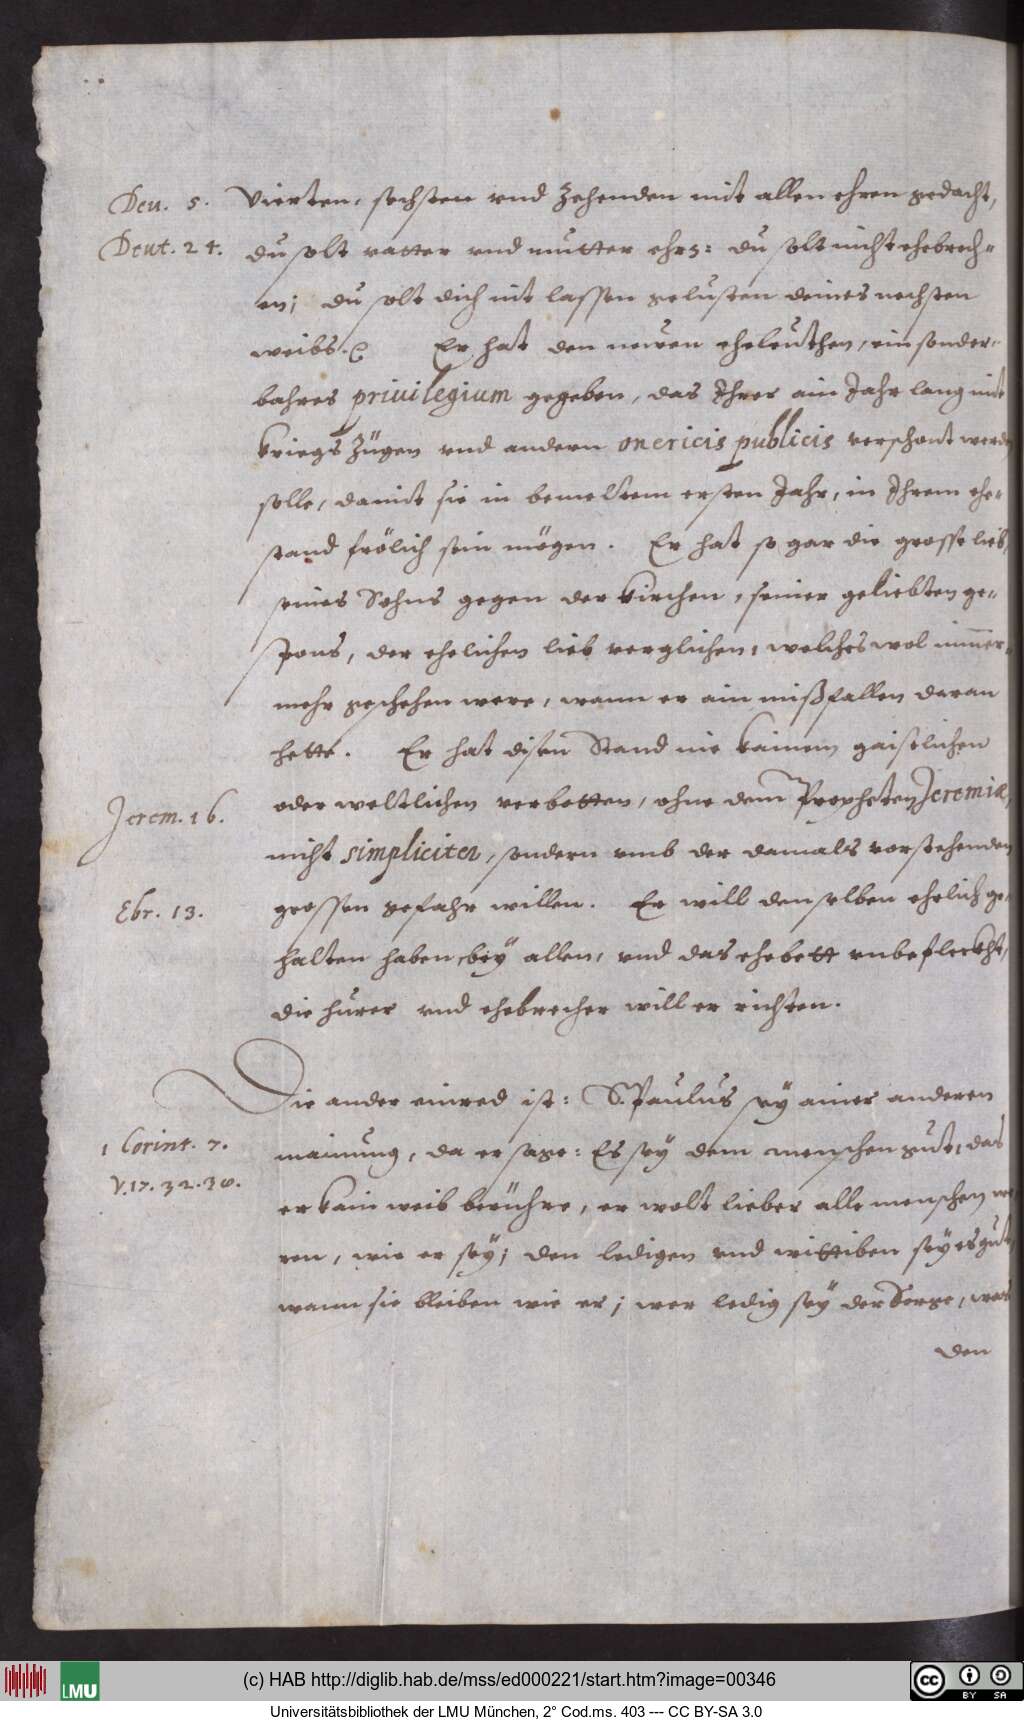 Deu. 5.
Deut. 24.
Vierten, sechsten vnd Zehenden mit allen ehren gedacht,
du solt vatter vnd mutter ehrn: du solt nicht ehebrech-
en; du solt dich nit lassen gelusten deines nechsten
weibs. Er hat den newen eheleuthen, ein sonder-
bahres privilegium gegeben, das Ihrer ain Jahr lang mit
kriegs Zügen vnd andern onericis publicis verschont werden
solle, damit sie in bemeltem ersten Jahr, in Ihrem ehe-
stand frölich sein mögen. Er hat so gar die grosse lieb,
seines Sohns gegen der kirchen, seiner geliebten ge-
spons, der ehelichen lieb verglichen, welches wol nimmer-
mehr geschehen were, wann er ain mißfallen daran
hette. Er hat disen Stand nie kainem gaistlichen
Jerem. 16.
oder weltlichen verbotten, ohne dem Propheten Jeremiæ,
nicht simpliciter, sondern vmb der damals vorstehenden
Ebr. 13.
grossen gefahr willen. Er will denselben ehelich ge-
halten haben, beÿ allen, vnd das ehebett vnbefleckht,
die hurer vnd ehebrecher will er richten.
Die ander einred ist: S. Paulus seÿ ainer anderen
1 Corint. 7.
V. 17. 32. 38.
mainung, da er sage: Es seÿ dem menschen gut, das
er kain weib berühre, er wolt lieber alle menschen we
ren, wie er seÿ; den ledigen vnd wittiben seÿ es gut,
wann sie bleiben wie er; wer ledig seÿ der Sorge, was
den
(c) HAB http://diglib.hab.de/mss/ed000221/start.htm?image=00346
LMU
CC BY SA
Universitätsbibliothek der LMU München, 2° Cod.ms. 403 --- CC BY-SA 3.0